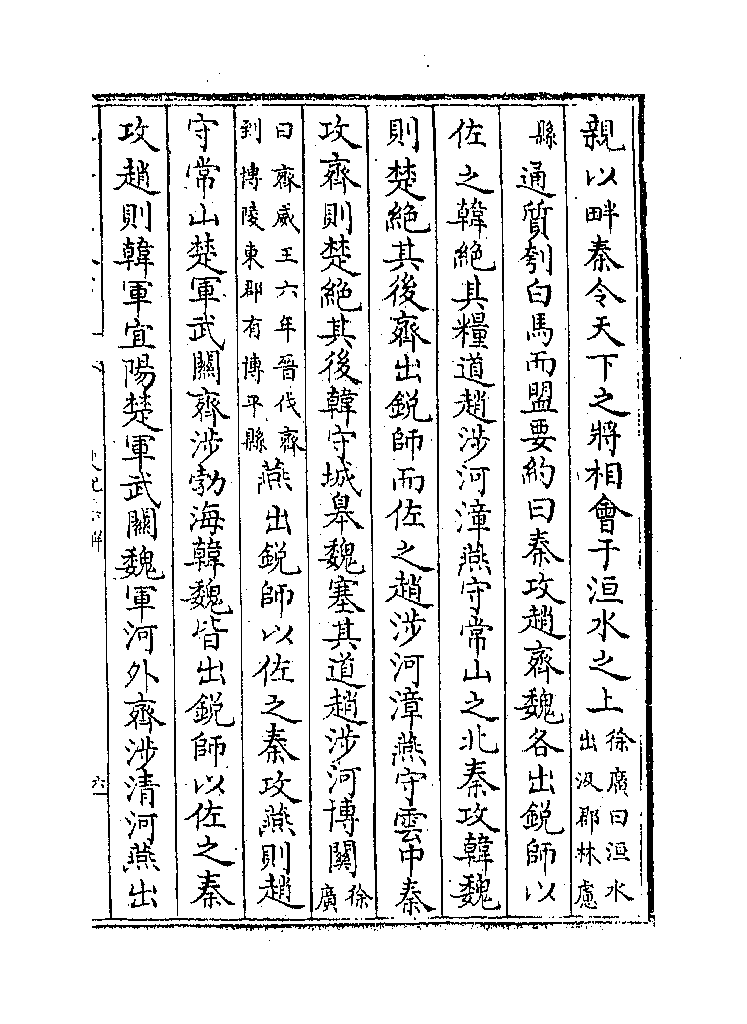 親以畔秦令天下之將相會于洹水之上徐廣曰洹水出汲郡林慮
縣通質刳白馬而盟要約曰秦攻趙齊魏各出銳師以
佐之韓絶其糧道趙涉河漳燕守常山之北秦攻韓魏
則楚絶其後齊出銳師而佐之趙涉河漳燕守雲中秦
攻齊則楚絶其後韓守城臯魏塞其道趙涉河博關徐廣
曰齊威王六年晉伐齊到博陵東郡有博平縣燕出銳師以佐之秦攻燕則趙
守常山楚軍武關齊涉勃海韓魏皆出銳師以佐之秦
攻趙則韓軍宜陽楚軍武關魏軍河外齊涉清河燕出
六